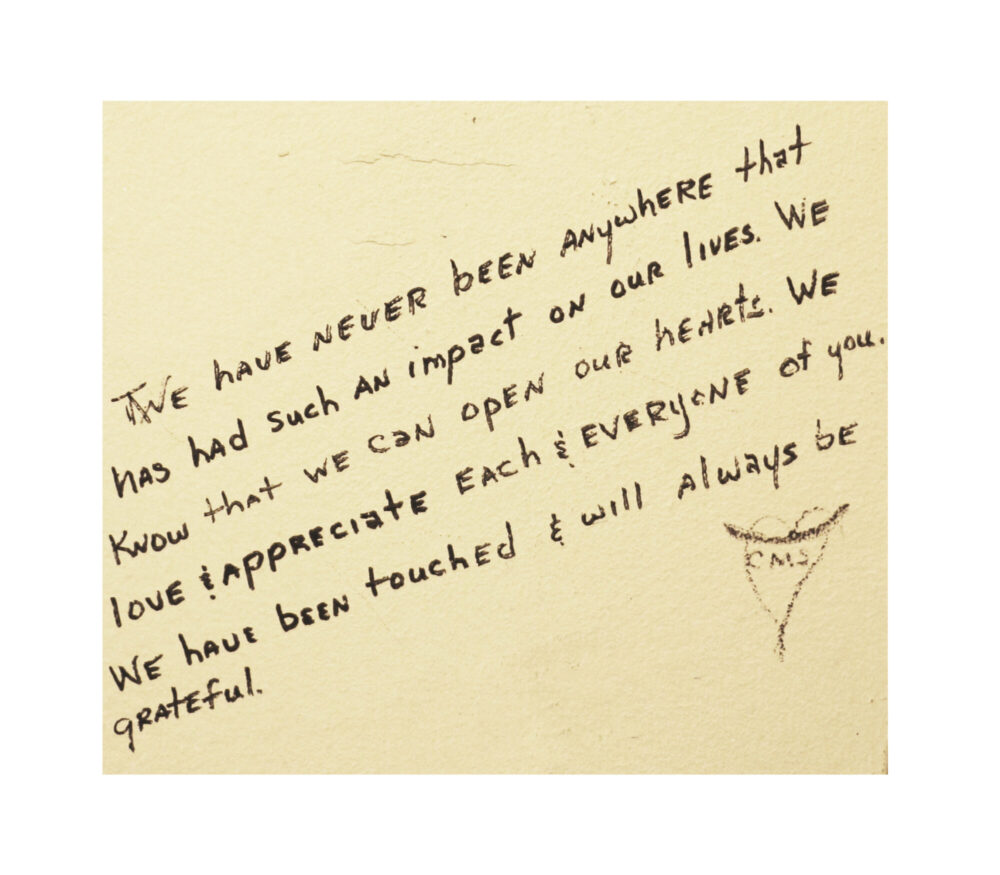 WE hAVE NEVER bEEN ANywhERE that
hAS hAd such AN impact ON OUR lIVES. WE
KNOW that WE CaN OPEN OUR hEARts. WE
lOVE & APPRECIatE EACh & EVERYONE of you.
WE hAVE bEEN touchEd & will Always bE
gRAtEful.
CMS